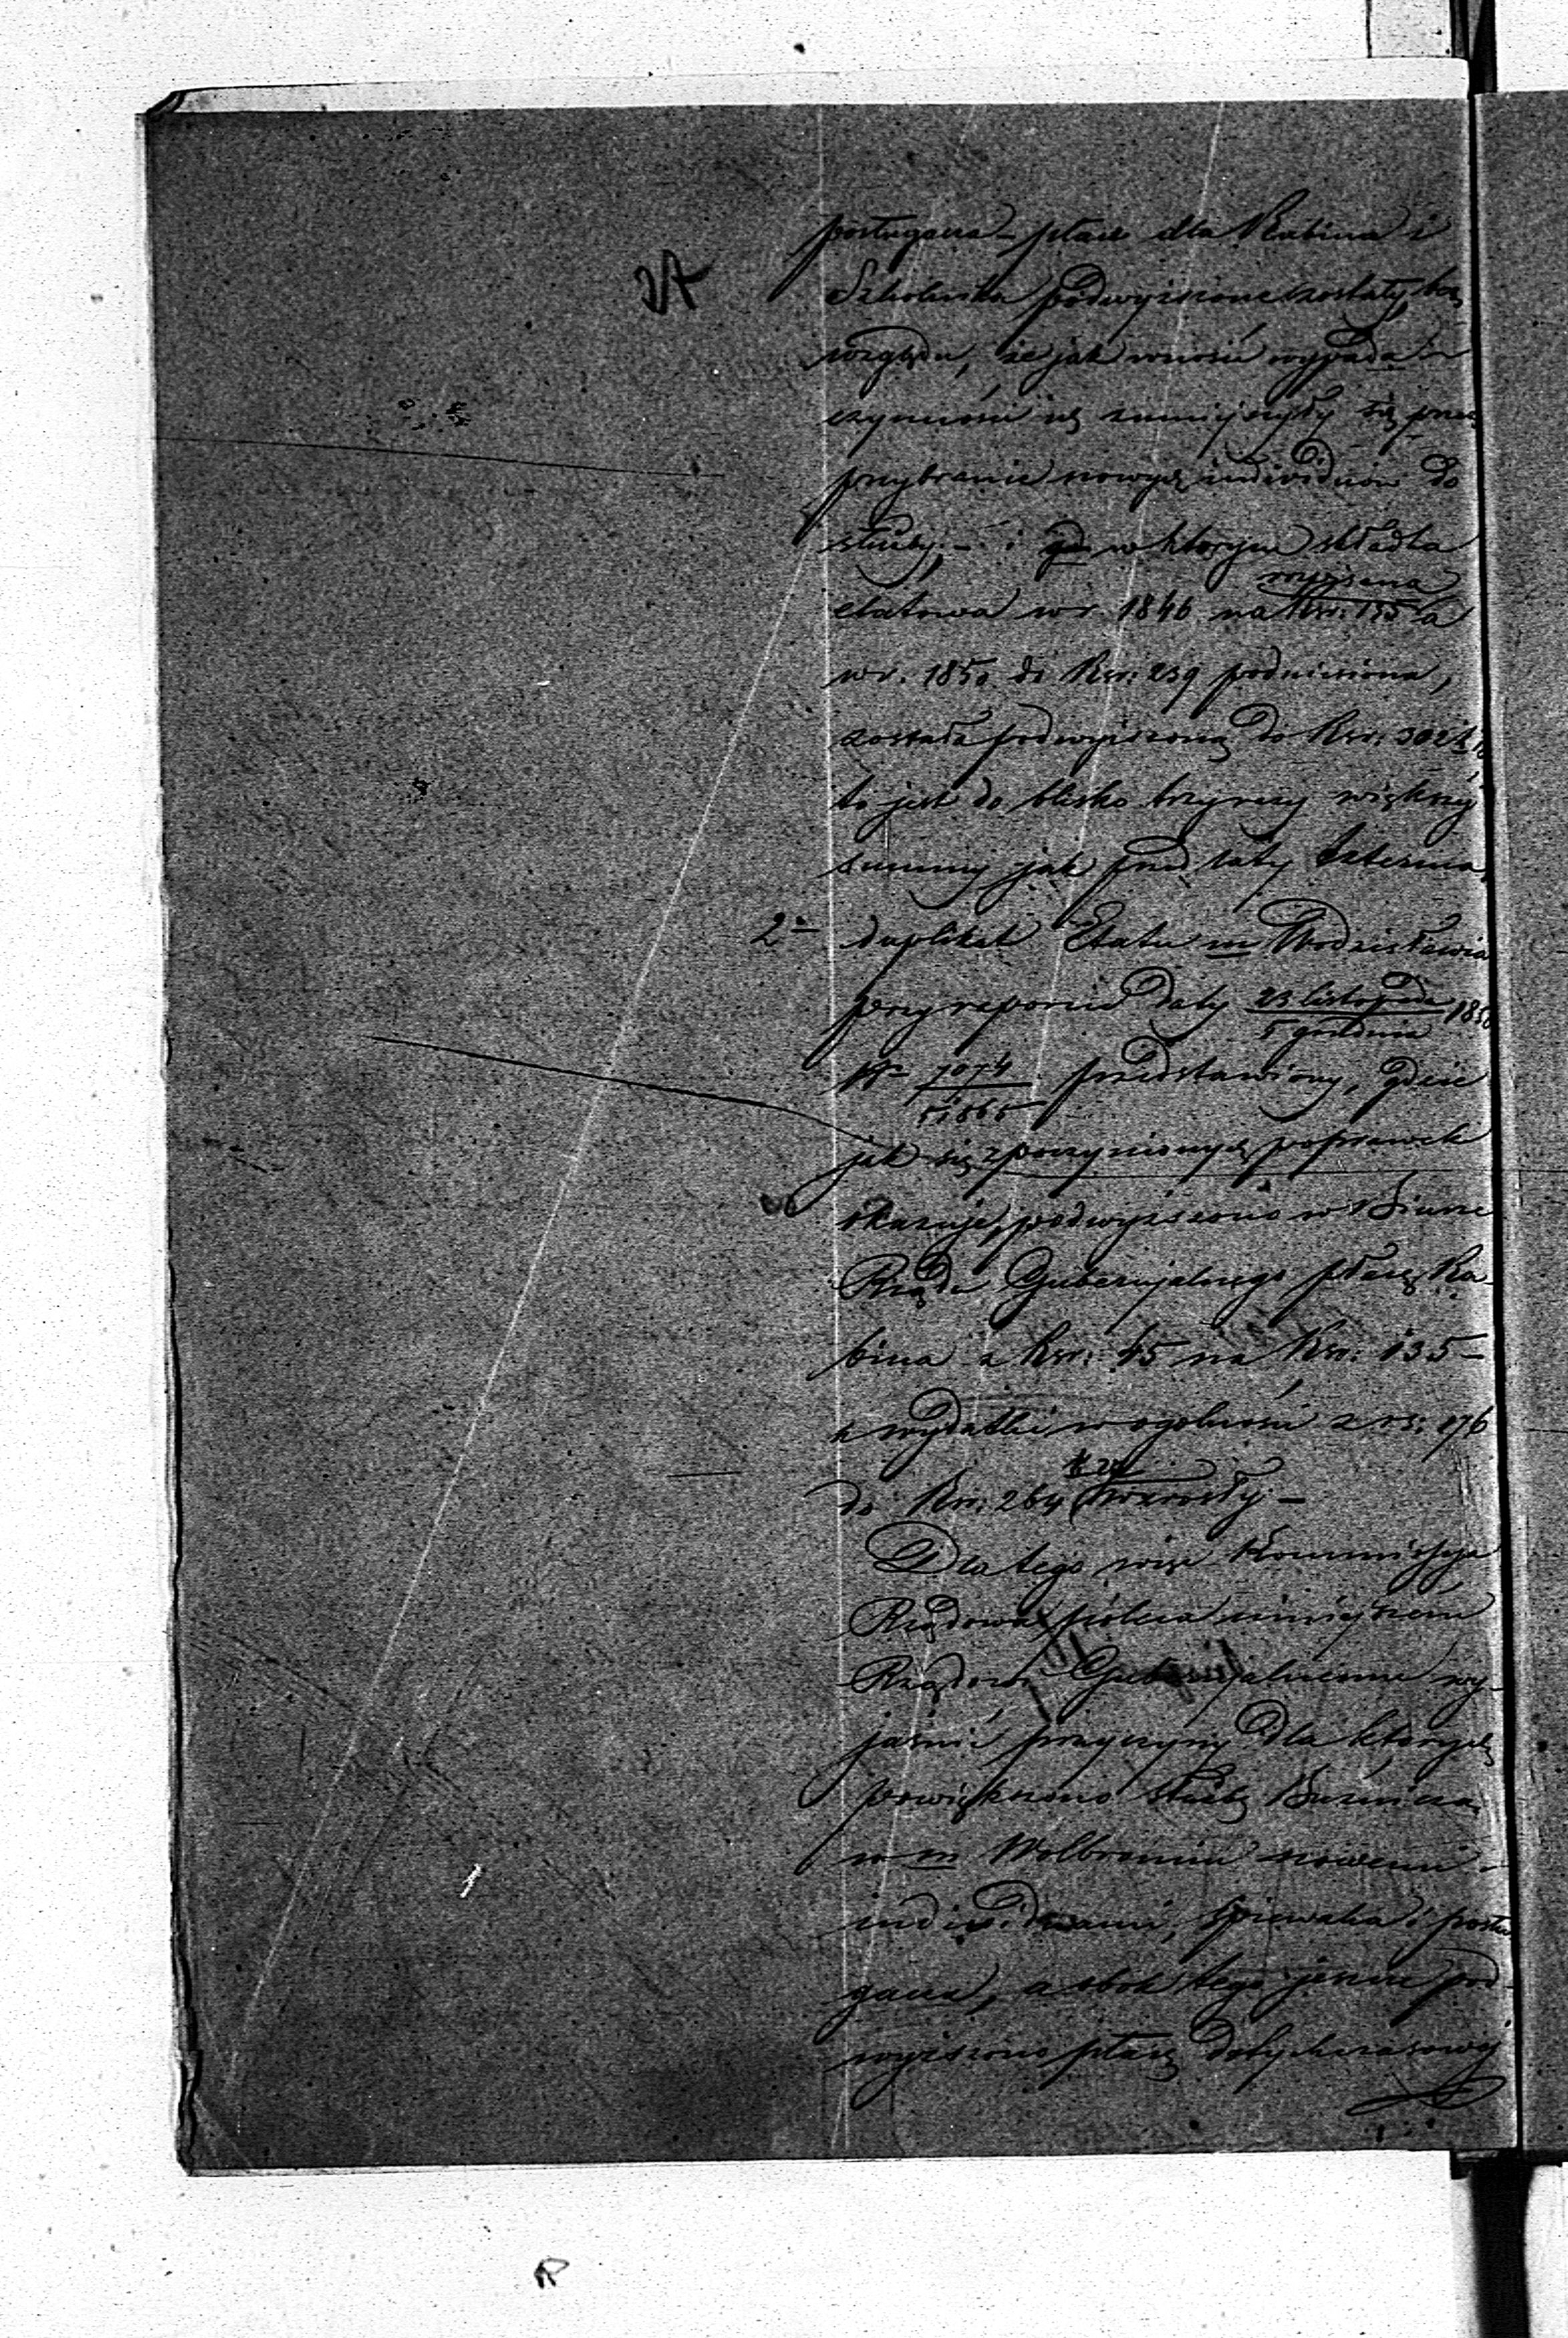 posługacza – płace dla Rabina i
Szkolnika podwyższone zostały, bez
względu, że jak wnosić wypada
czynności ich zmniejszyły się przez
przybranie nowych individuów do
służby; – i w którym składka
wyższona
etatowa w r. 1846 na Rsr: 155 a
w r. 1850 do Rsr: 239 podniesiona,
została podwyższoną do Rsr: 302
to jest do blisko trzy razy większej
summy jak przed laty czterma.
2o duplikat Etatu m Wodzisławia
przy reporcie daty 23 listopada / 5 grudnia 1850
No 7074 / 51865 przedstawiony, gdzie
jak się z poczynionych poprawek
okazuje, podwyższono w Biurze
Rządu Gubernjalnego płacę Ra-
bina z Rsr: 45 na Rsr: 135 –
a wydatki w ogólności z rs: 176
do Rsr: 264 wzrosły –
Dla tego więc Kommissyja
Rządowa poleca niniejszem
Rządowi Gubernjalnemu wy-
jaśnić przyczyny dla których
powiększono służbę Bużniczą
w m Wolbromiu nowemi
individuami, śpiewaka i posłu
gacza, a obok tego jeszcze pod-
wyższono płacę dotychczasowej